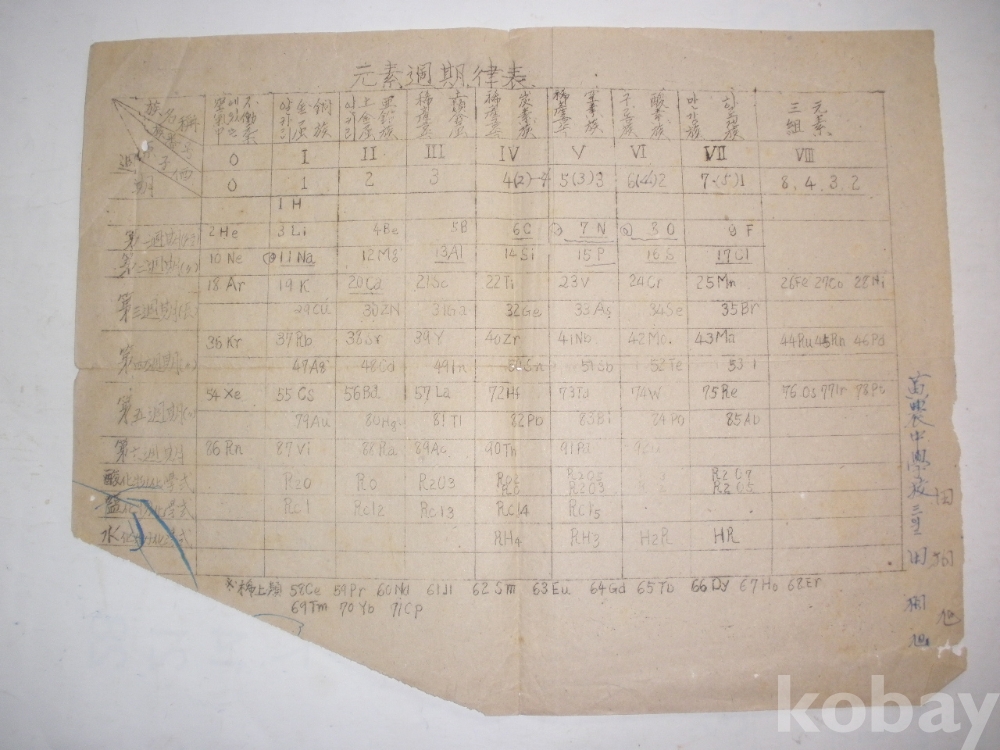 元素週期律表
族名稱
週期
空氣中에있는 不働素
알카리金屬 銅族
알카리土金屬 亞鉛族
稀產
稀產 炭素族
稀產 窒素族
酸素族
만간族
三組 元素
0 I II III IV V VI VII VIII
0 1 2 3 4(2)-4 5(3)3 6(4)2 7-(5)1 8.4.3.2
1H
第一週期 2He 3Li 4Be 5B 6C 7N 8O 9F
第二週期 10Ne 11Na 12Mg 13Al 14Si 15P 16S 17Cl
第三週期 18Ar 19K 20Ca 21Sc 22Ti 23V 24Cr 25Mn 26Fe 27Co 28Ni
29Cu 30ZN 31Ga 32Ge 33As 34Se 35Br
第四週期 36Kr 37Rb 38Sr 39Y 40Zr 41Nb 42Mo 43Ma 44Ru 45Rh 46Pd
47Ag 48Cd 49In 50Sn 51Sb 52Te 53I
第五週期 54Xe 55Cs 56Ba 57La 72Hf 73Ta 74W 75Re 76Os 77Ir 78Pt
79Au 80Hg 81Tl 82Pb 83Bi 84PO 85Ab
第六週期 86Rn 87Vi 88Ra 89Ac 90Th 91Pa 92U
酸化物化學式 R2O RO R2O3 RO2 R2O5 R2O7
R2O3 R2O5
鹽化物化學式 RCl RCl2 RCl3 RCl4 RCl5
水化學式 RH4 RH3 H2R HR
稀土類 58Ce 59Pr 60Nd 61Il 62Sm 63Eu 64Gd 65Tb 66Dy 67Ho 68Er
69Tm 70Yb 71Cp
高農中學校三年 田炯旭
田炯旭
kobay